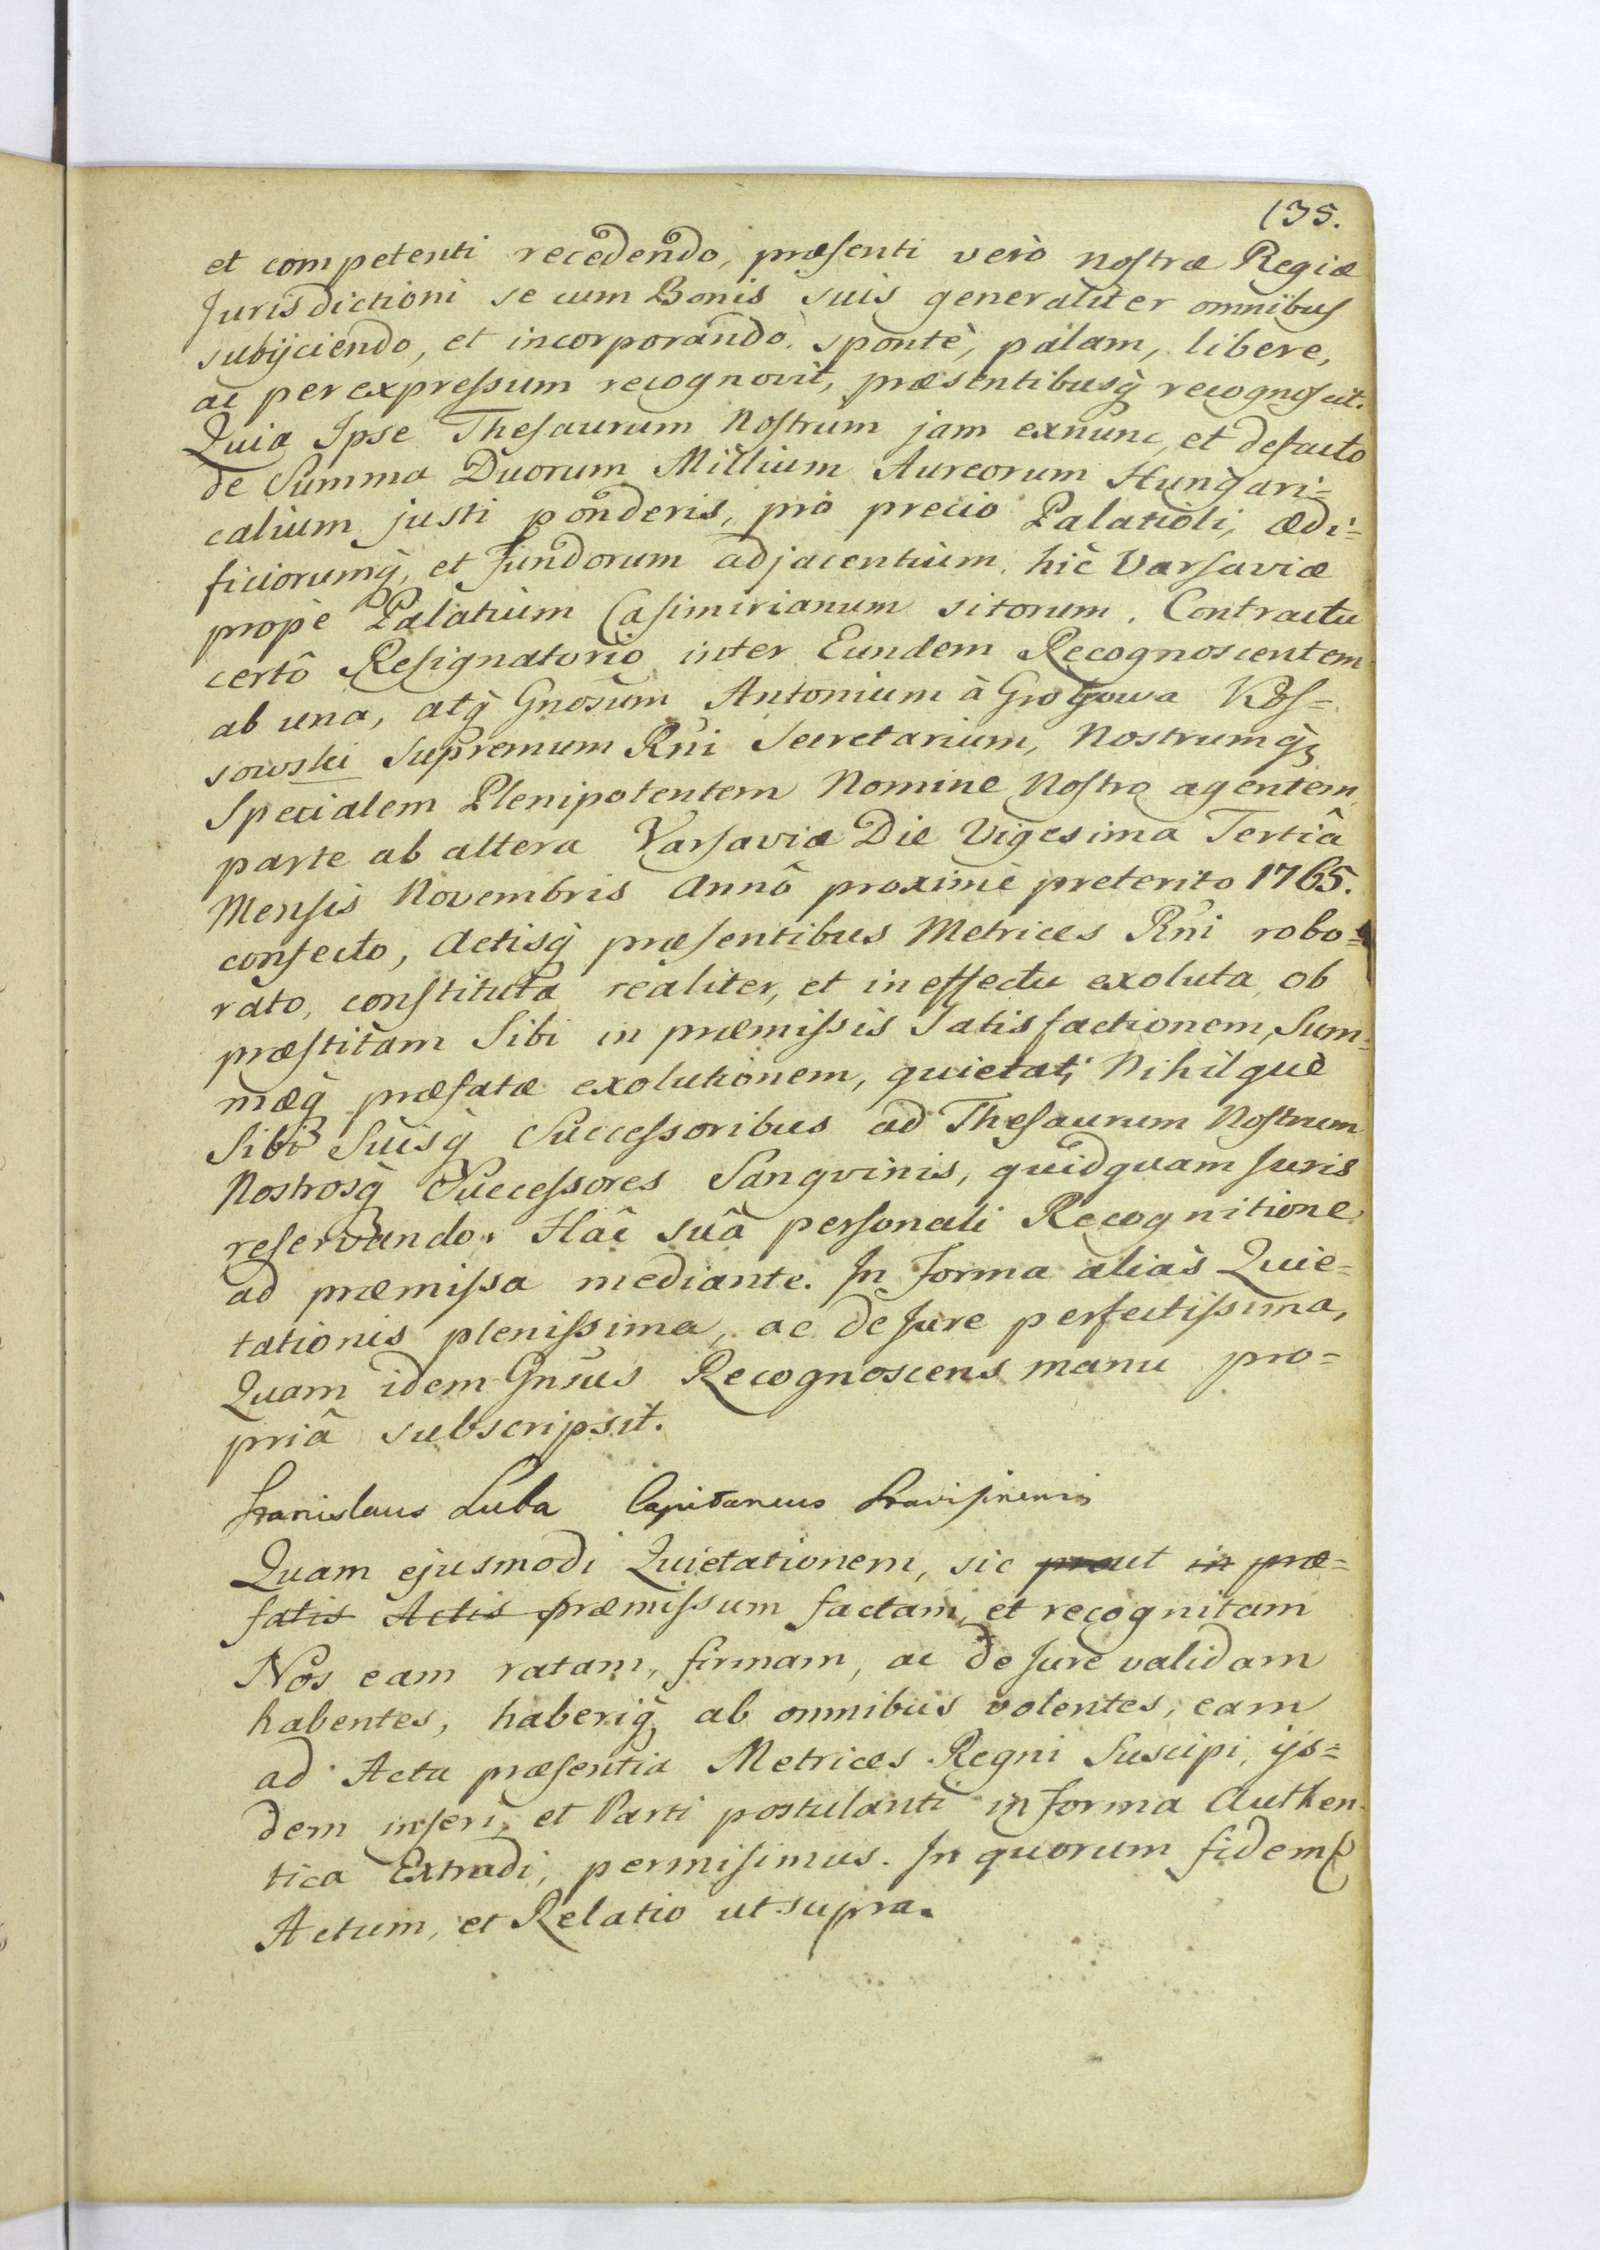 135.
et competenti recedendo, præsenti verò nostræ Regiæ
Jurisdictioni se cum Bonis suis generaliter omnibus
subijciendo, et incorporando, spontè, palam, libere,
ac per expressum recognovit, præsentibusq̀ recognoscit.
Quia Ipse Thesaurum Nostrum jam exnunc, et defacto
de Summa Duorum Millium Aureorum Hungari=
calium justi ponderis, pro precio Palatioli, ædi=
ficiorumq̀, et Fundorum adjacentium, hic Varsaviæ
propè Palatium Casimirianum sitorum, Contractu
certô Resignatorio inter Eundem Recognoscentem
ab una, atq̀ Gnosum Antonium à Grogowa Kos=
sowski Supremum Rni Secretarium, Nostrumq̀
Specialem Plenipotentem Nomine Nostro agentem
parte ab altera Varsaviæ Die Vigesima Tertiâ
Mensis Novembris Annô proximè preterito 1765.
confecto, Actisq̀ præsentibus Metrices Rni robo=
rato, constituta realiter, et in effectu exoluta, ob
præstitam Sibi in præmissis Satisfactionem, Sum=
mæq̀ præfatæ exolutionem, quietat; Nihilque
Sibi Suisq̀ Successoribus ad Thesaurum Nostrum
Nostrosq̀ Successores Sangvinis, quidquam Juris
reservando. Hâc suâ personali Recognitione
ad præmissa mediante. In Forma aliàs Quie=
tationis plenissima, ac de Jure perfectissima,
Quam idem Gnsus Recognoscens manu pro=
priâ subscripsit.
Stanislaus Luba Capitaneus Stavisinensis
Quam ejusmodi Quietationem, sic prout in præ=
fatis Actis præmissum factam, et recognitam
Nos eam ratam, firmam, ac de Jure validam
habentes, haberiq̀ ab omnibus volentes, eam
ad Acta præsentia Metrices Regni Suscipi, ijs=
dem inseri, et Parti postulanti in Forma Authen
tica Extradi, permisimus. In quorum fidem
Actum, et Relatio ut supra.